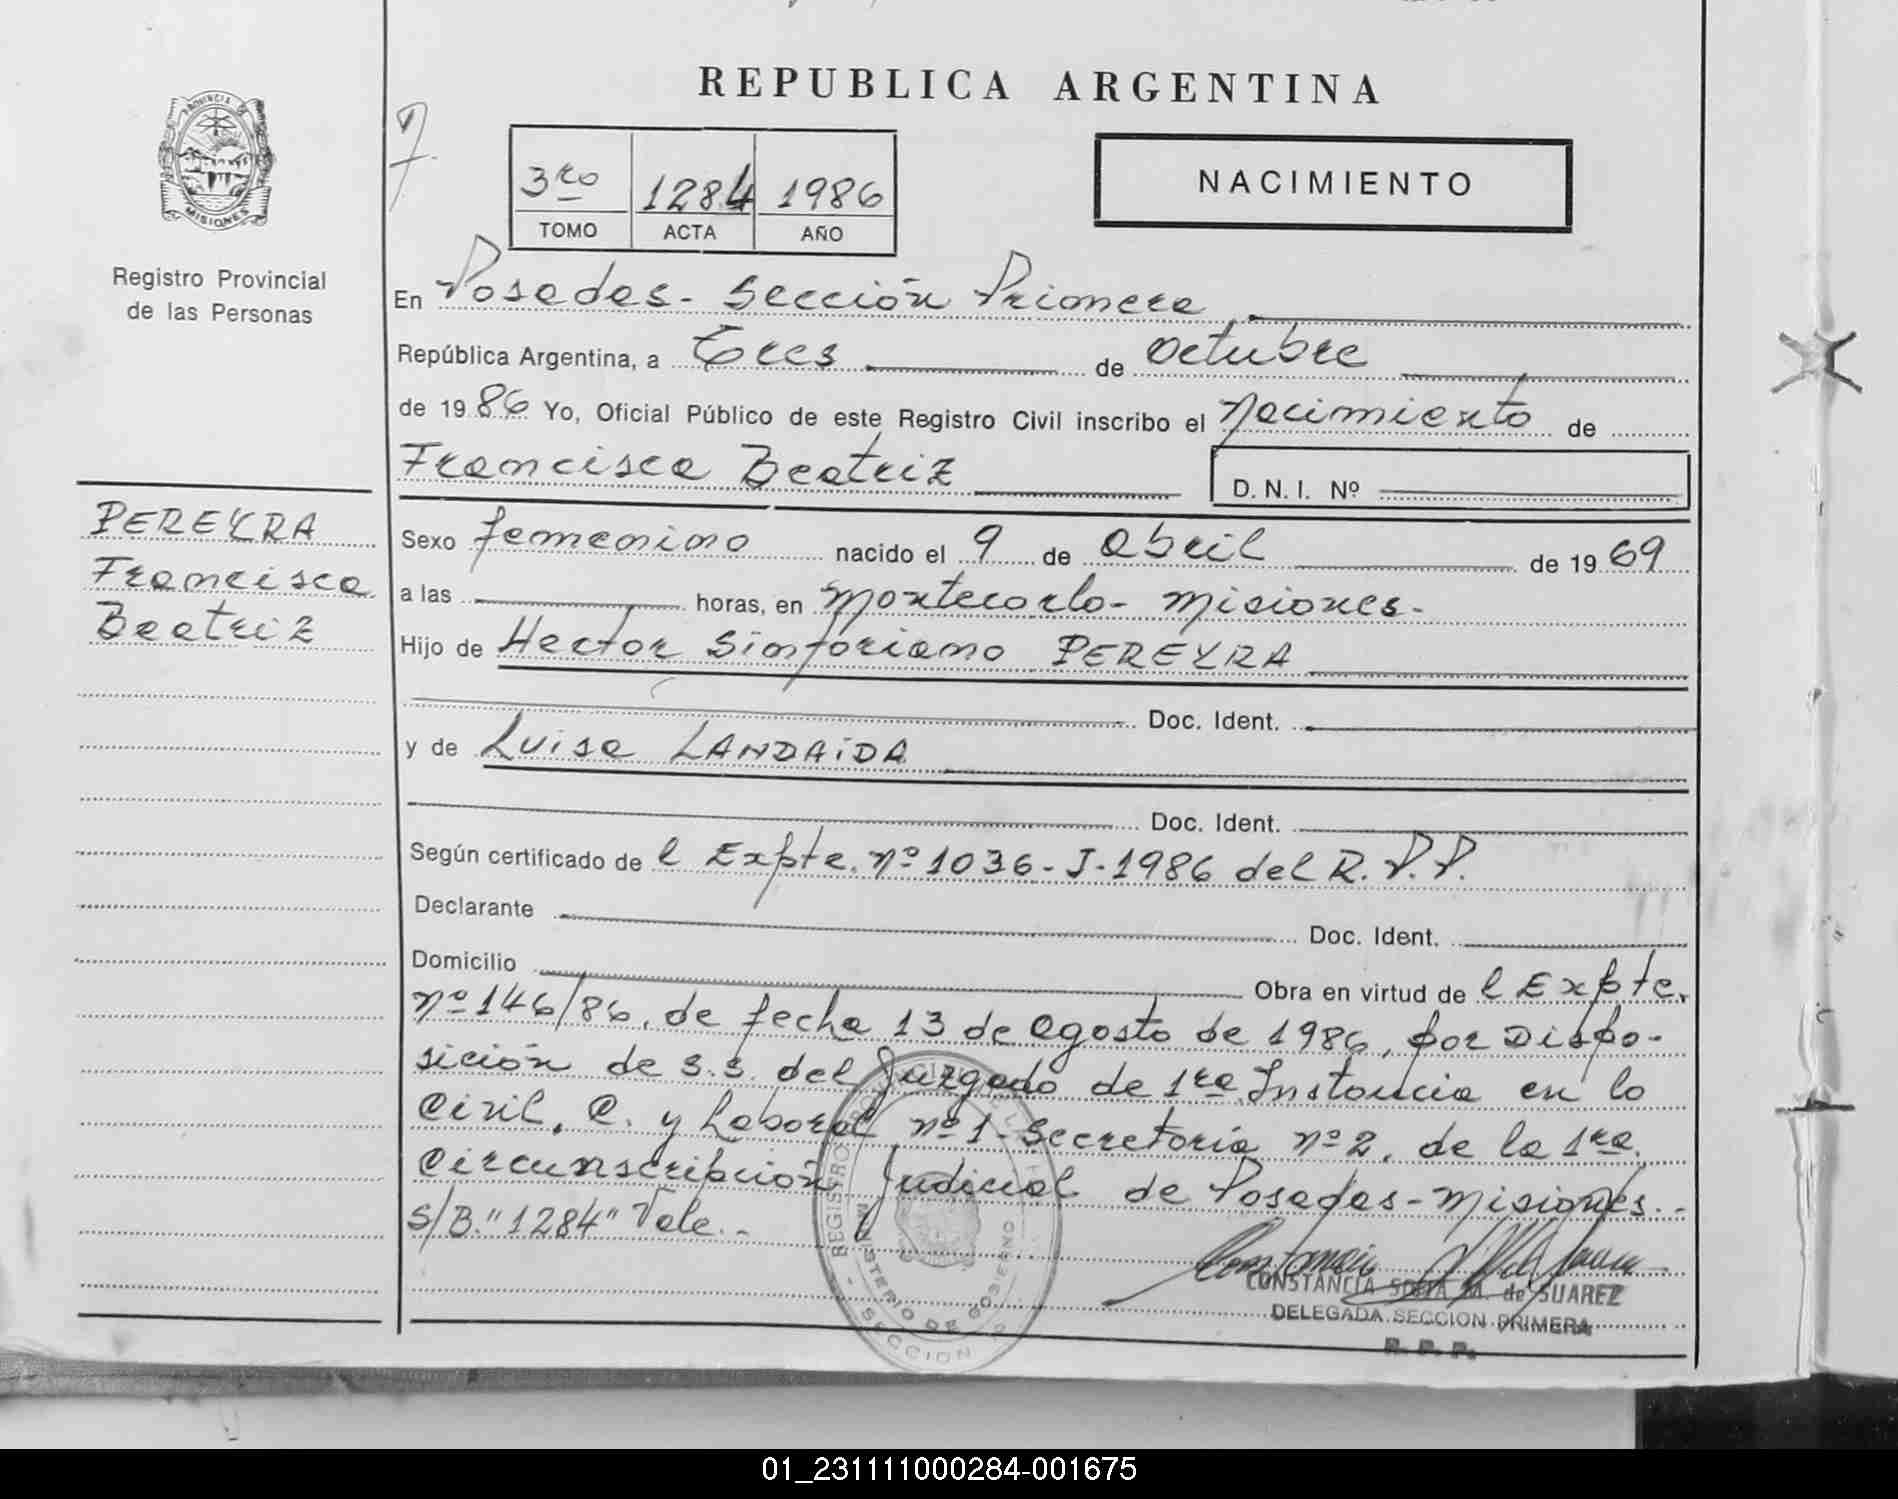 REPUBLICA ARGENTINA
PROVINCIA DE
MISIONES
Registro Provincial
de las Personas
3ro 1284 1986
TOMO ACTA AÑO
NACIMIENTO
En Posadas - Sección Primera
República Argentina, a Tres de Octubre
de 1986 Yo, Oficial Público de este Registro Civil inscribo el Nacimiento de
Francisca Beatriz
D. N. I. Nº
PEREYRA
Francisca
Beatriz
Sexo femenino nacido el 9 de Abril de 1969
a las horas, en Montecarlo - Misiones.
Hijo de Hector Sinforiano PEREYRA
Doc. Ident.
y de Luisa LANDAIDA
Doc. Ident.
Según certificado de l Expte. nº 1036-J-1986 del R.P.P.
Declarante Doc. Ident.
Domicilio Obra en virtud de l Expte.
nº 146/86, de fecha 13 de Agosto de 1986, por Dispo-
sición de S.S. del Juzgado de 1ra. Instancia en lo
Civil, C. y Laboral nº 1 - Secretaría nº 2, de la 1ra.
Circunscripción Judicial de Posadas - Misiones.-
S/B. "1284" Vale.-
MINISTERIO DE GOBIERNO
SECCION
CONSTANCIA SOFIA M. de SUAREZ
DELEGADA SECCION PRIMERA
R. P. P.
01_231111000284-001675